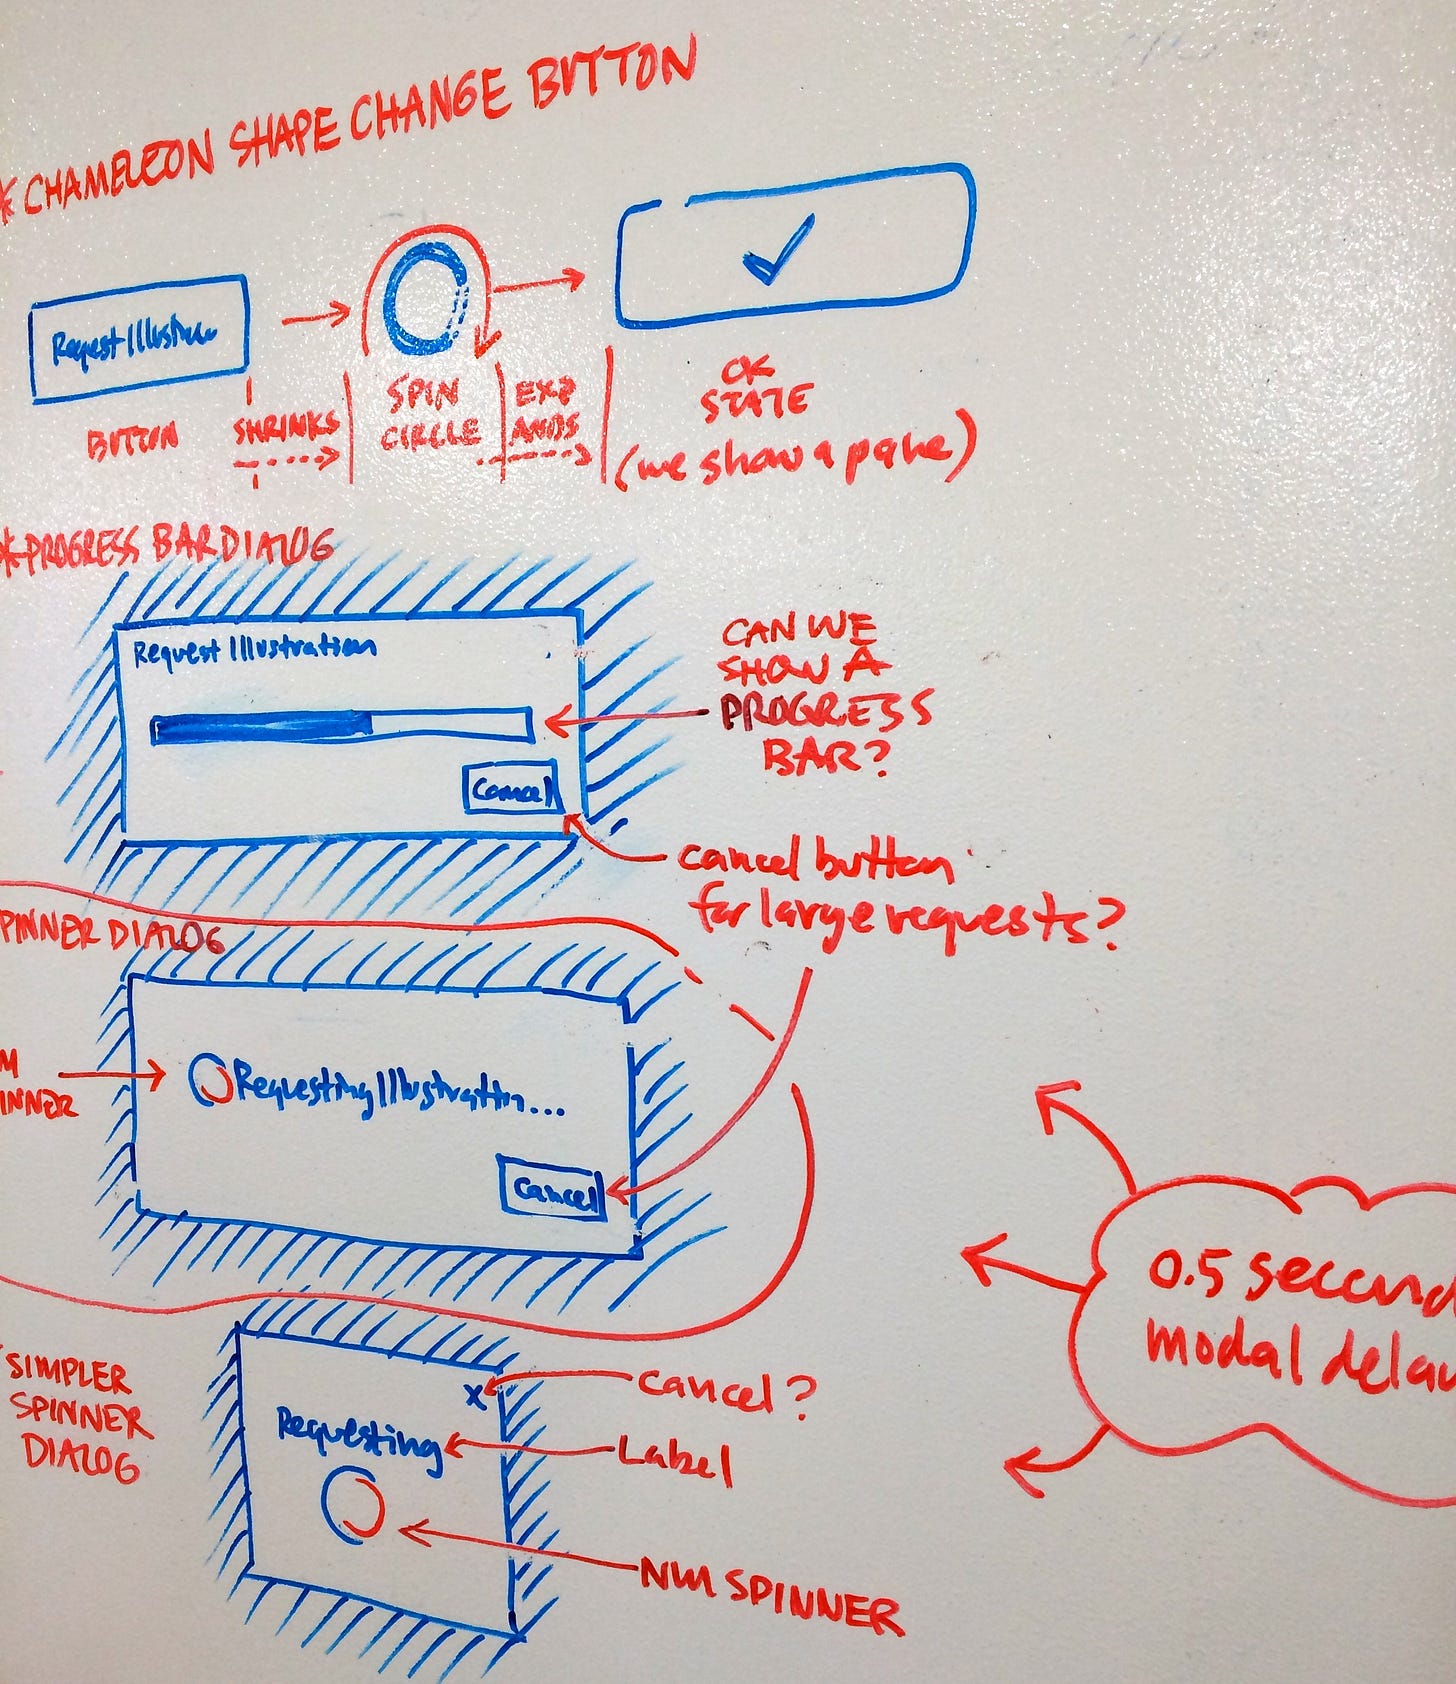 * CHAMELEON SHAPE CHANGE BUTTON
Request
✓
BUTTON
SHRINKS
SPIN
CIRCLE
EXP
ANDS
OK
STATE
(we show a pane)
* PROGRESS BAR DIALOG
Request Illustration
Cancel
CAN WE
SHOW A
PROGRESS
BAR?
cancel button
for large requests?
PINNER DIALOG
M
INNER
Requesting Illustration...
Cancel
0.5 second
modal delay
SIMPLER
SPINNER
DIALOG
X
Requesting
cancel?
Label
NM SPINNER